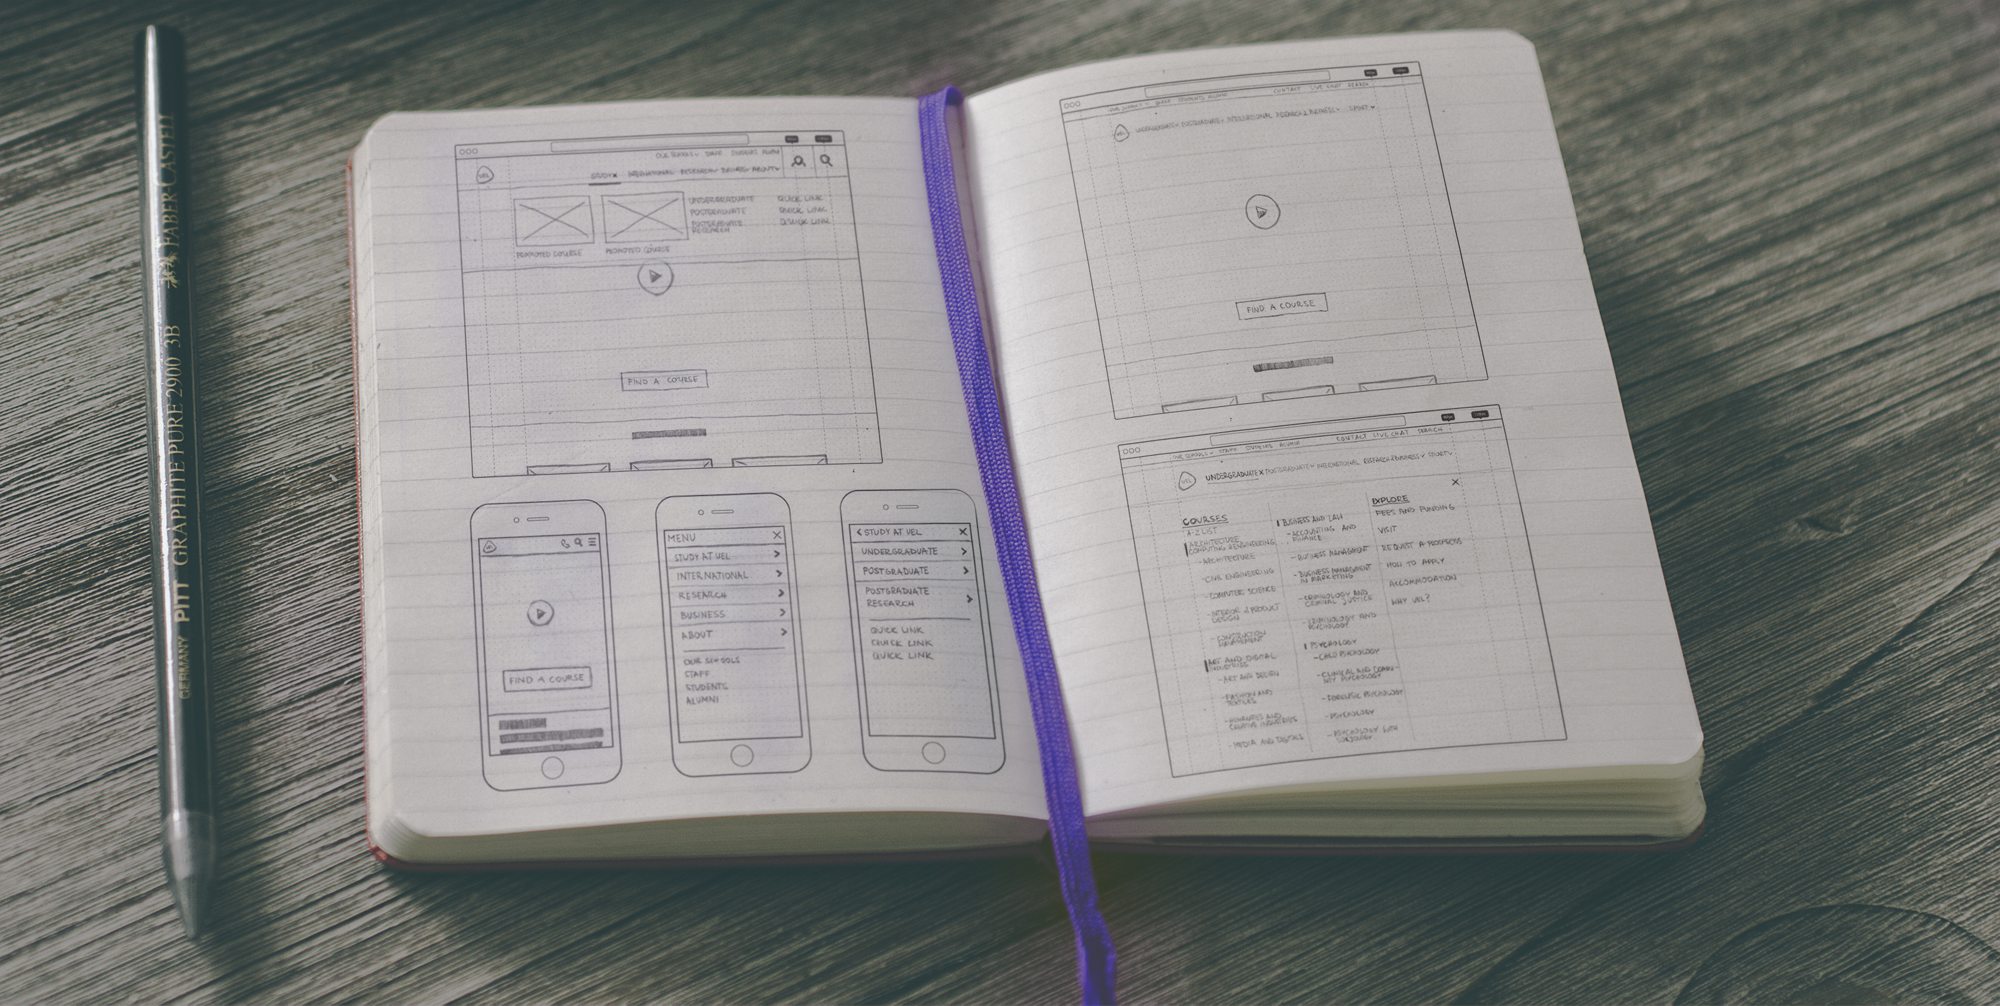 FABER-CASTELL
PITT GRAPHITE PURE 2900 3B
GERMANY
OUR SCHOOLS STAFF STUDENTS ALUMNI
UEL
STUDY X INTERNATIONAL RESEARCH BUSINESS ABOUT
UNDERGRADUATE
POSTGRADUATE
POSTGRADUATE
RESEARCH
QUICK LINK
QUICK LINK
QUICK LINK
PROMOTED COURSE
PROMOTED COURSE
FIND A COURSE
UEL
FIND A COURSE
MENU X
STUDY AT UEL >
INTERNATIONAL >
RESEARCH >
BUSINESS >
ABOUT >
OUR SCHOOLS
STAFF
STUDENTS
ALUMNI
< STUDY AT UEL X
UNDERGRADUATE >
POSTGRADUATE >
POSTGRADUATE
RESEARCH >
QUICK LINK
QUICK LINK
QUICK LINK
STUDENTS ALUMNI
CONTACT LIVE CHAT SEARCH
UEL
UNDERGRADUATE POSTGRADUATE INTERNATIONAL RESEARCH & BUSINESS
FIND A COURSE
OUR SCHOOLS STUDENTS ALUMNI
CONTACT LIVE CHAT SEARCH
UEL
UNDERGRADUATE X POSTGRADUATE INTERNATIONAL RESEARCH & BUSINESS
X
COURSES
A-Z LIST
ARCHITECTURE
COMPUTING & ENGINEERING
- ARCHITECTURE
- CIVIL ENGINEERING
- COMPUTER SCIENCE
- INTERIOR & PRODUCT
DESIGN
- CONSTRUCTION
MANAGEMENT
ART AND DIGITAL
INDUSTRIES
- ART AND DESIGN
- FASHION AND
TEXTILES
- HUMANITIES AND
CREATIVE INDUSTRIES
- MEDIA AND DIGITAL
BUSINESS AND LAW
- ACCOUNTING AND
FINANCE
- BUSINESS MANAGMENT
- BUSINESS MANAGMENT
IN MARKETING
- CRIMINOLOGY AND
CRIMINAL JUSTICE
- CRIMINOLOGY AND
PSYCHOLOGY
PSYCHOLOGY
- CHILD PSYCHOLOGY
- CLINICAL AND
PSYCHOLOGY
- FORENSIC PSYCHOLOGY
- PSYCHOLOGY
- PSYCHOLOGY WITH
SOCIOLOGY
EXPLORE
FEES AND FUNDING
VISIT
REQUEST A
HOW TO APPLY
ACCOMMODATION
WHY UEL?